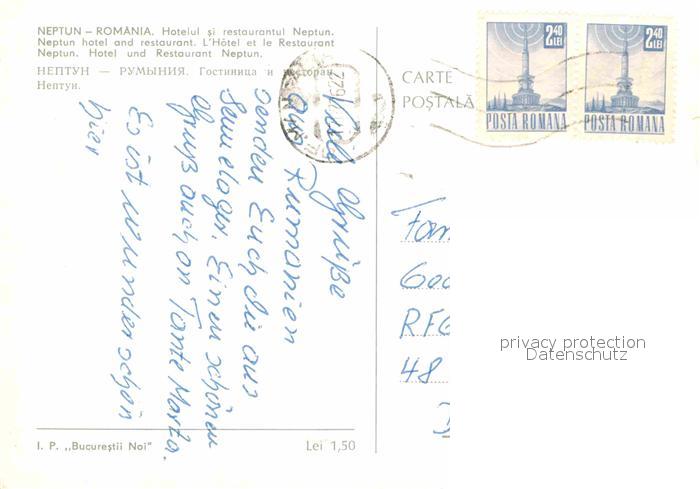 NEPTUN – ROMÂNIA. Hotelul și restaurantul Neptun.
Neptun hotel and restaurant. L'Hôtel et le Restaurant
Neptun. Hotel und Restaurant Neptun.
НЕПТУН — РУМЫНИЯ. Гостиница и ресторан
Нептун.
CARTE
POȘTALĂ
2,40
LEI
POSTA ROMANA
2,40
LEI
POSTA ROMANA
Viele Grüße
aus Rumänien
senden Euch die aus
Einen schönen
Gruß auch an Tante Marta.
Es ist wunderschön
hier
RFG
48
privacy protection
Datenschutz
I. P. „Bucureștii Noi"
Lei 1,50